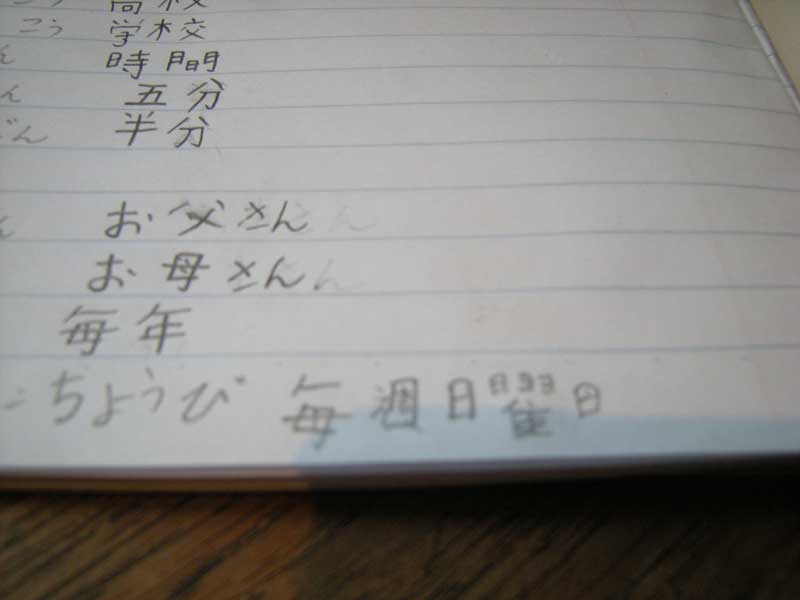 こう 高校
こう 学校
ん 時間
ん 五分
ぶん 半分
ん お父さん
お母さん
毎年
ちょうび 毎週日曜日